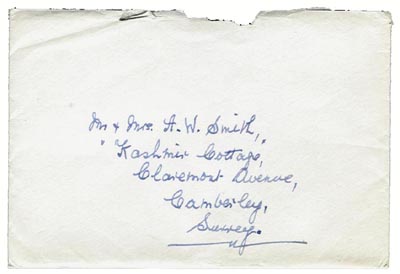 Mr & Mrs. A. W. Smith,
"Kashmir Cottage,"
Claremont Avenue,
Camberley,
Surrey.